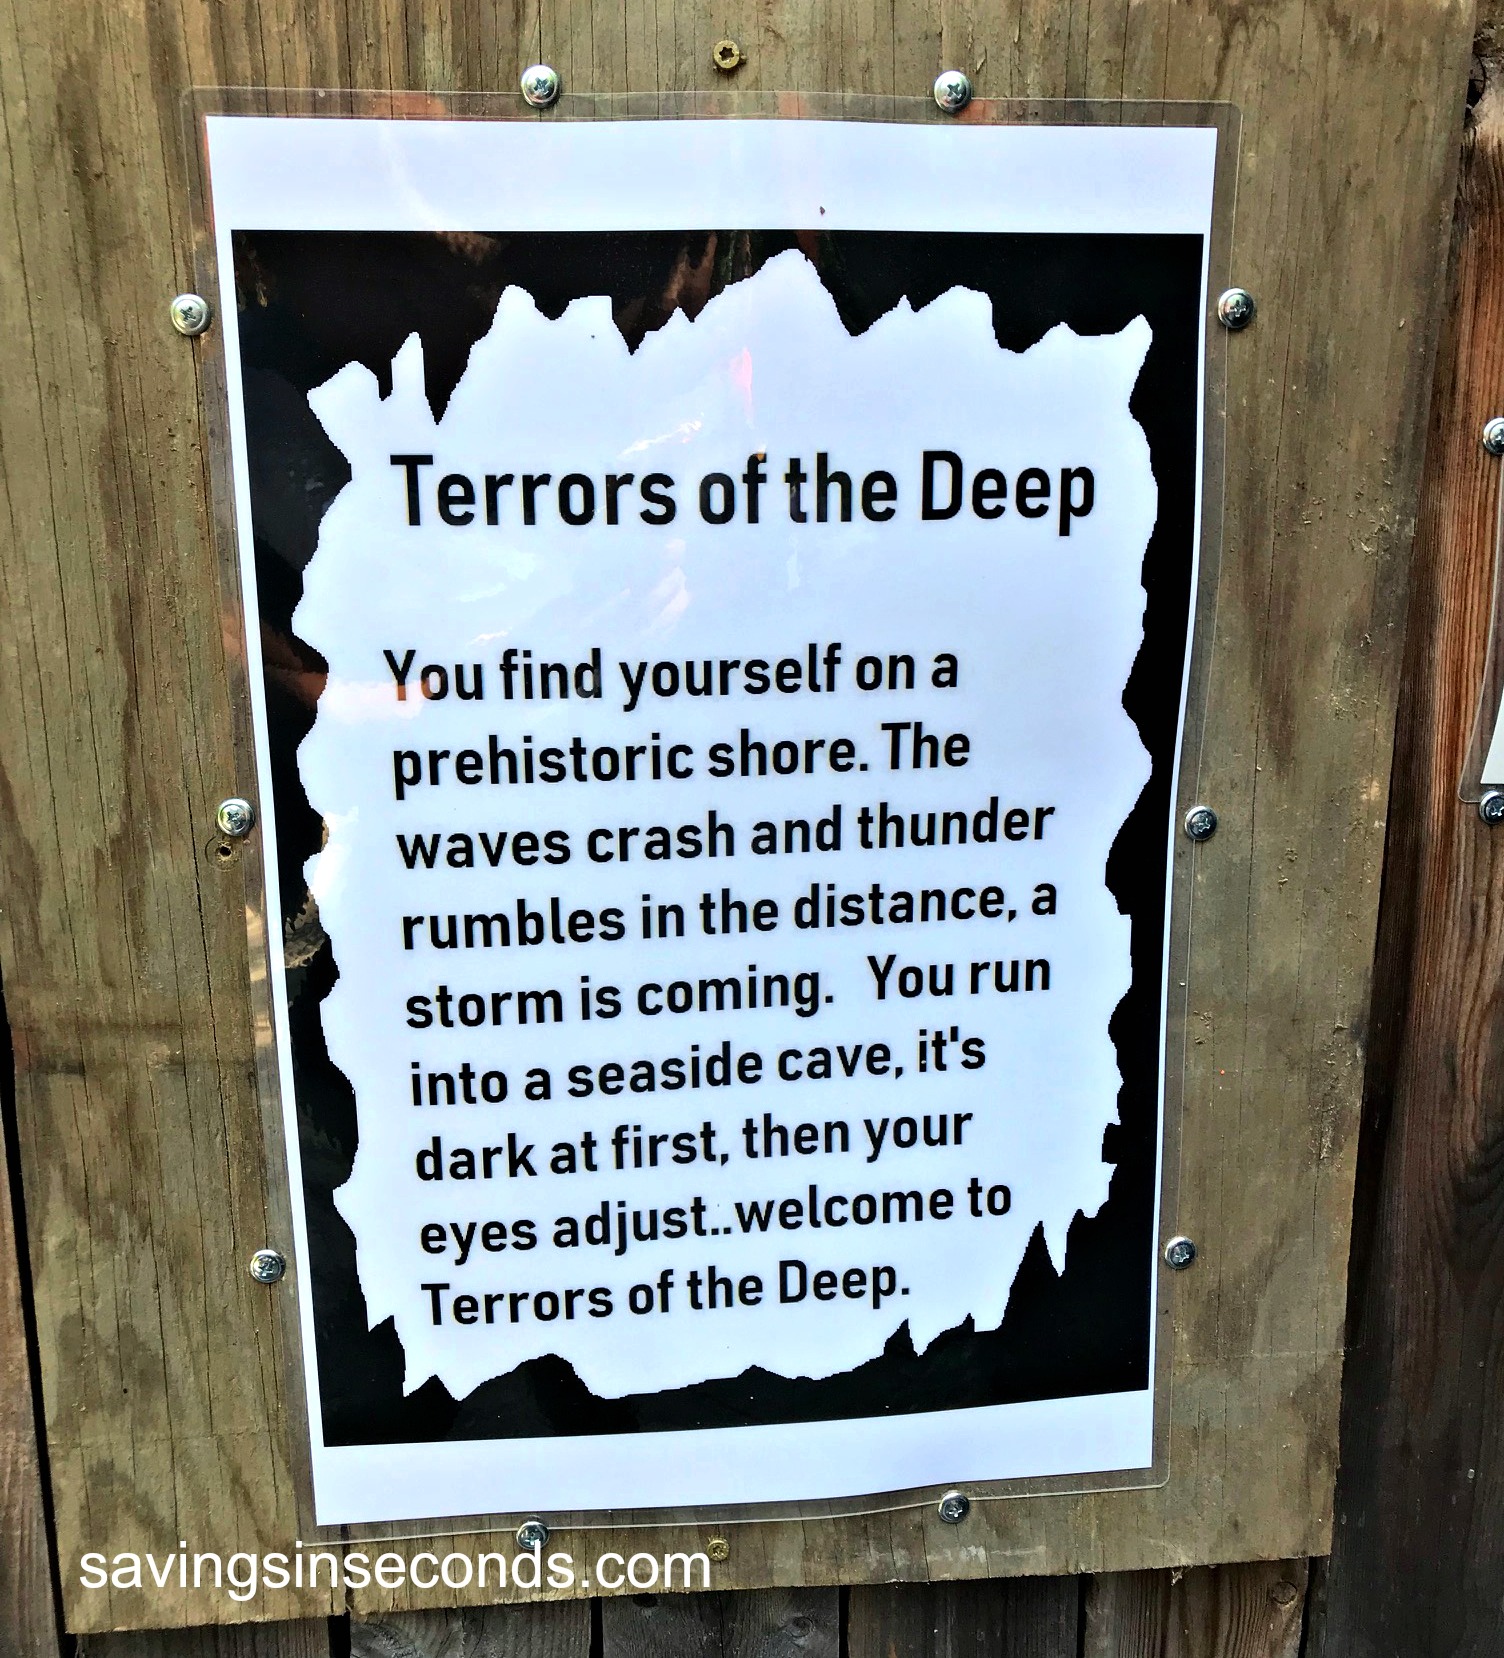 Terrors of the Deep
You find yourself on a
prehistoric shore. The
waves crash and thunder
rumbles in the distance, a
storm is coming.   You run
into a seaside cave, it's
dark at first, then your
eyes adjust..welcome to
Terrors of the Deep.
savingsinseconds.com